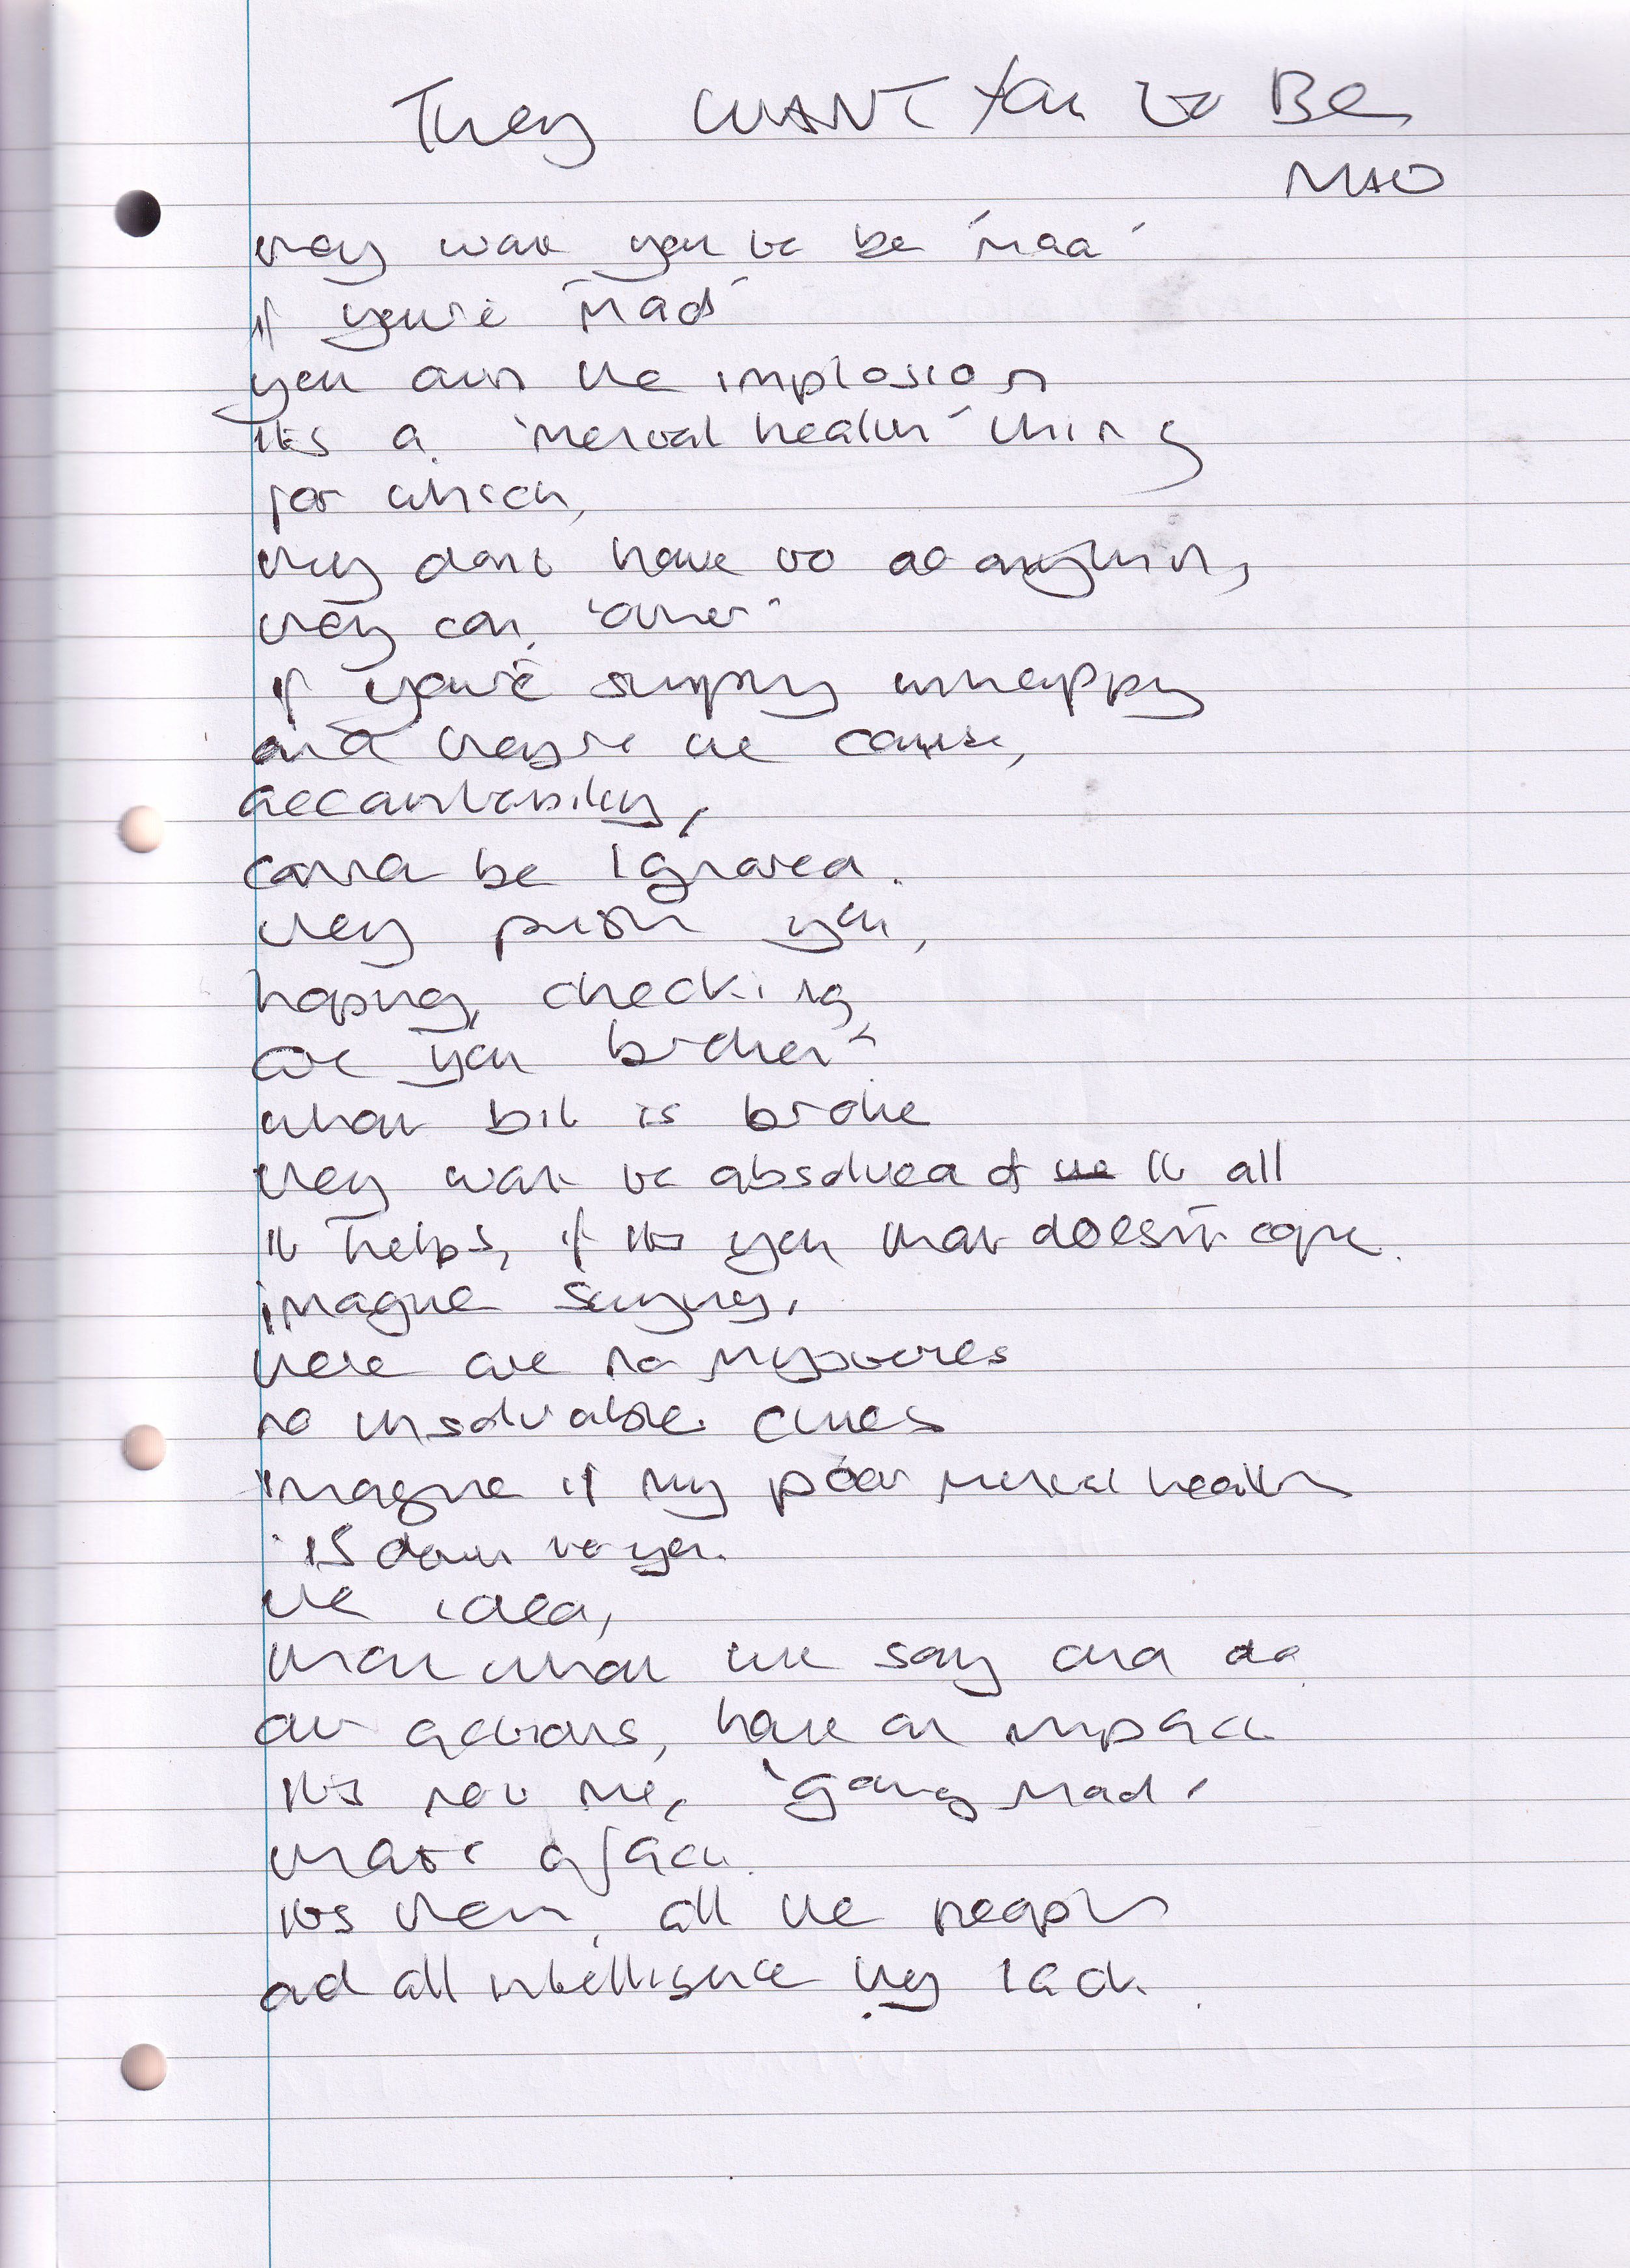 They WANT You to Be
MAD
they want you to be 'mad'
if you're 'mad'
you own the implosion
its a 'mental health' thing
for which,
they dont have to do anything,
they can, 'other'
if you're simply unhappy
and they're the cause,
accountability,
canna be ignored.
they you,
hoping, checking
are you broken?
what bit is broke
they want to absolved of the it all
it helps, if its you that doesn't cope.
imagine saying,
there are no mysteries
no unsolvable clues
imagine if my poor mental health
is down to you.
the idea,
that what we say and do
our actions, have an impact
its not me, 'going mad'
thats a fact.
its them, all the people
and all intelligence they lack.